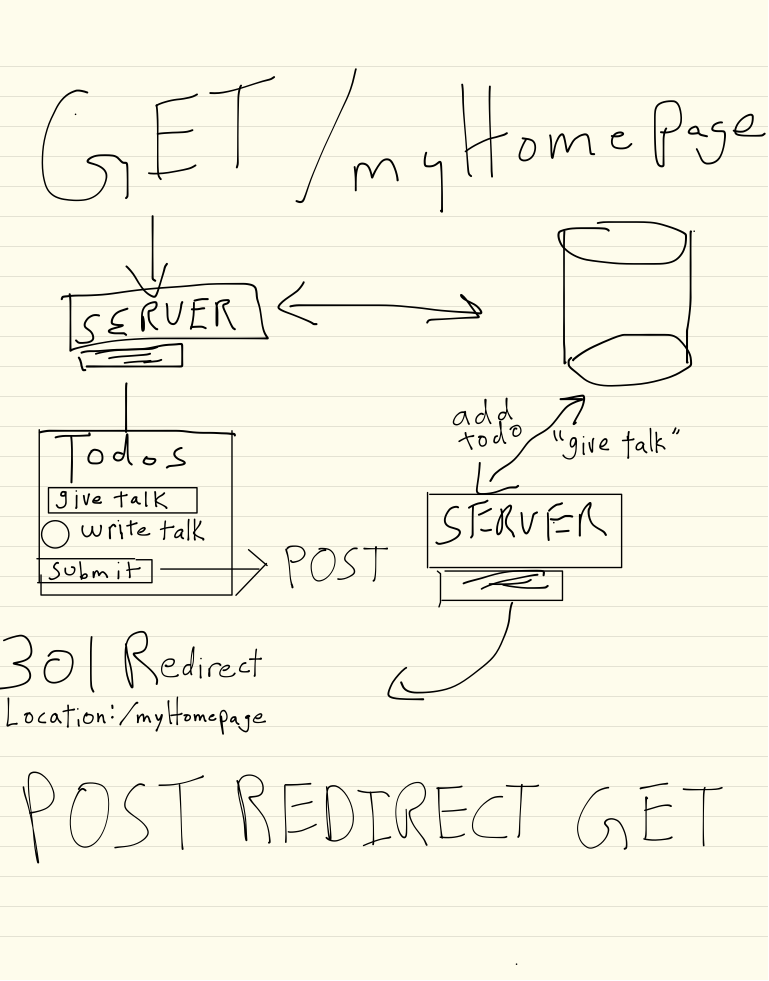 GET /myHomePage
SERVER
Todos
give talk
write talk
submit
POST
add
todo
"give talk"
SERVER
301 Redirect
Location:/myHomepage
POST REDIRECT GET